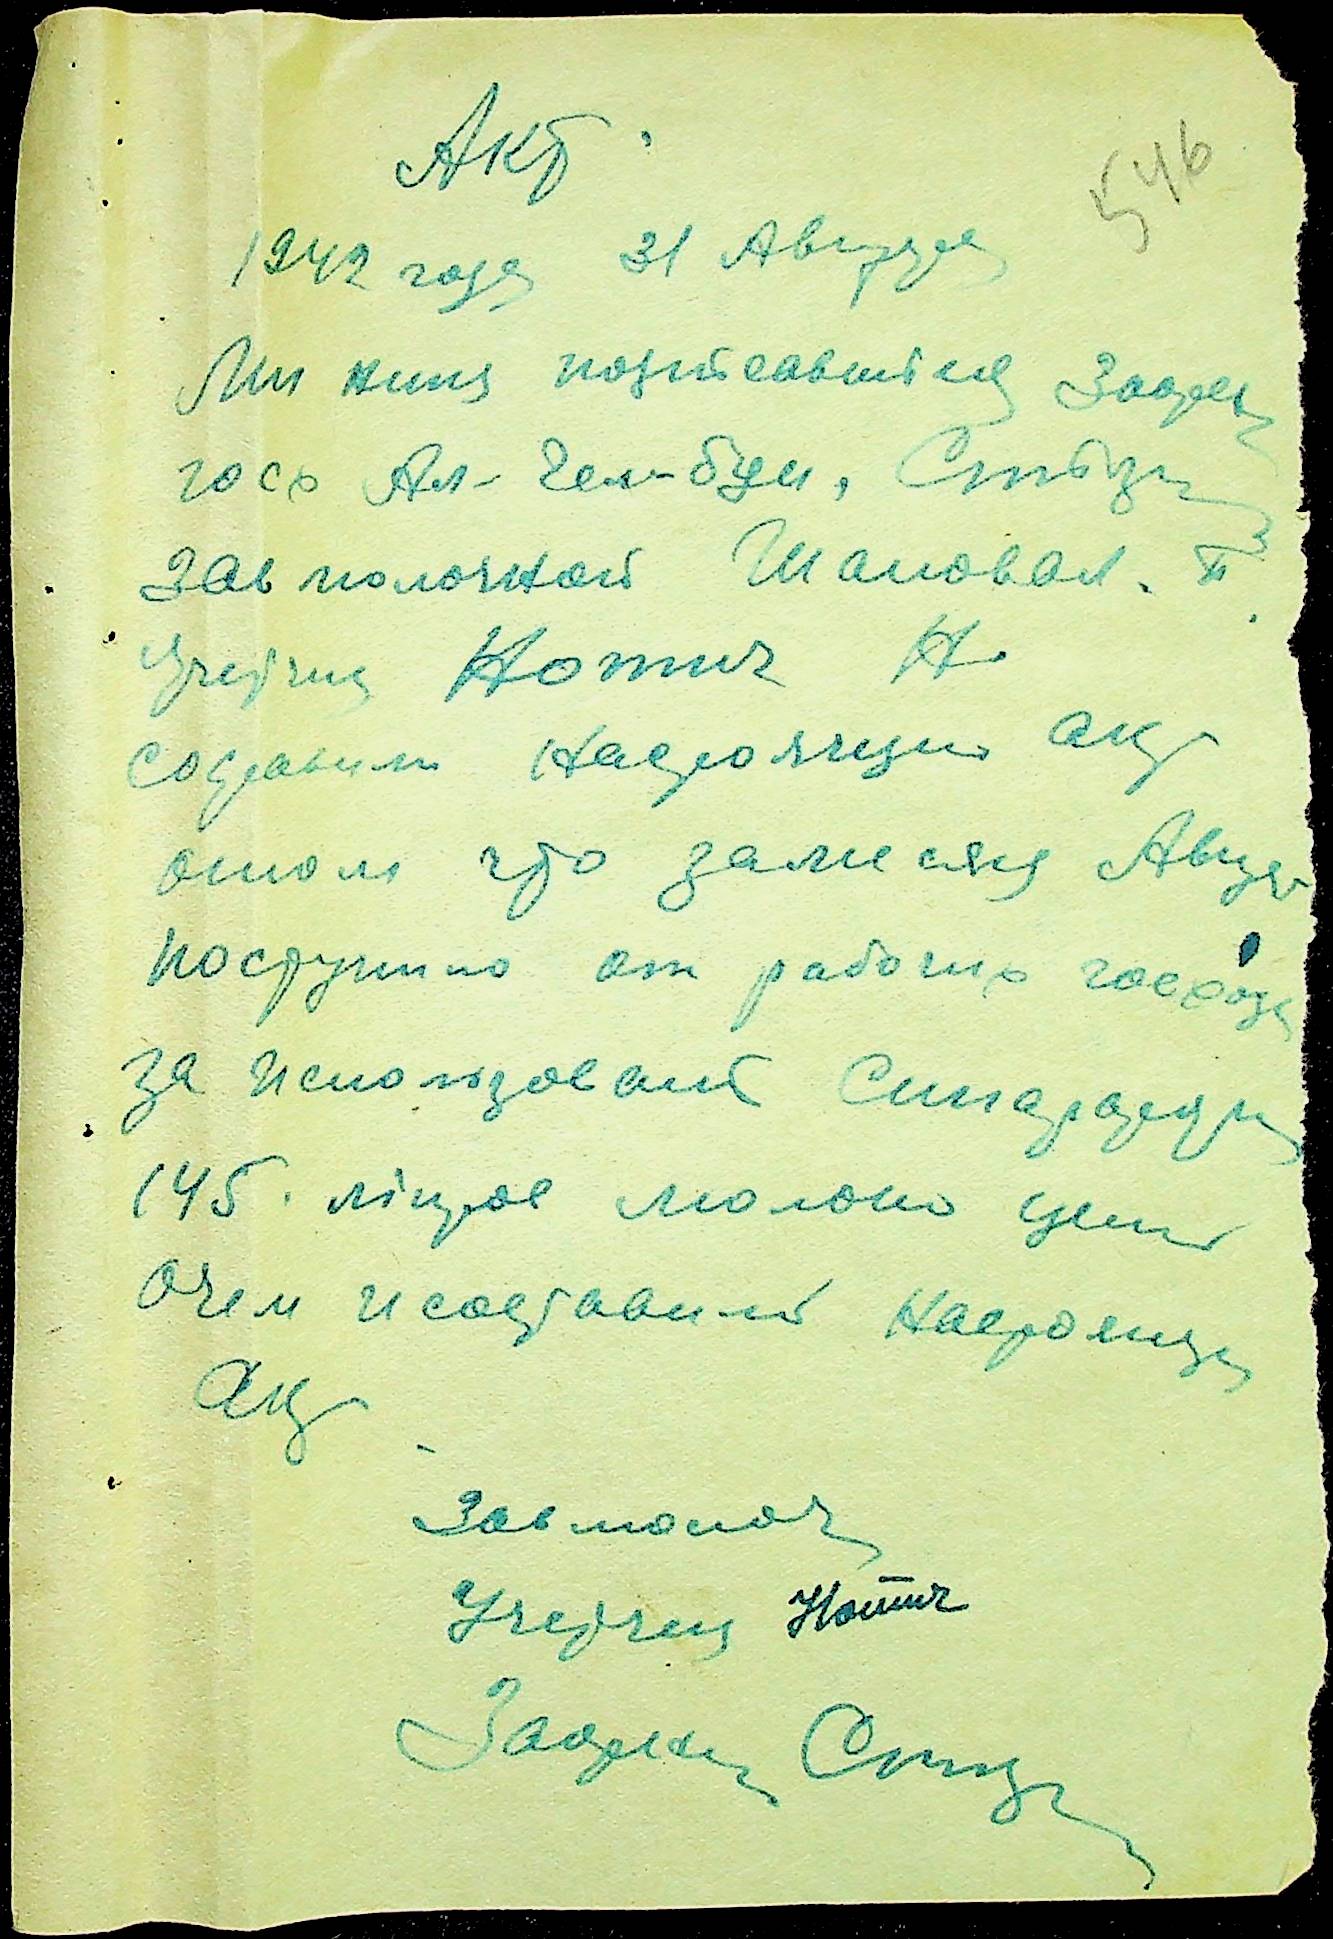 Акт.
546
1942 года 31 Августа
Ми ниже подписавшиеся Заотдел
госх Ал-Чел-буи,
Зав молочной Шаповал. П.
Учетчик Нотич Н.
составили настоящий акт
о том что за месяц Август
поступило от рабочих госхоза
за использований
145. літров молоко
о чем и составили настоящий
Акт
Завмолоч
Учетчик Нотич
Заотдел